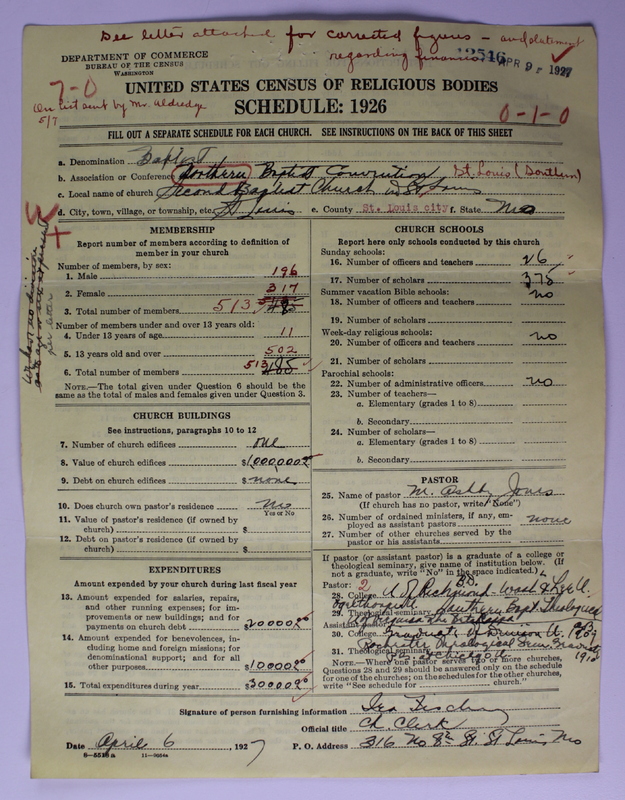 See letter attached for corrected figures - and statement
regarding finances
12516 APR 9 - 1927
DEPARTMENT OF COMMERCE
BUREAU OF THE CENSUS
WASHINGTON
7-0
On list sent by Mr. Aldredge
5/7
UNITED STATES CENSUS OF RELIGIOUS BODIES
SCHEDULE: 1926
0-1-0
FILL OUT A SEPARATE SCHEDULE FOR EACH CHURCH. SEE INSTRUCTIONS ON THE BACK OF THIS SHEET
a. Denomination Baptist
b. Association or Conference Northern Baptist Convention St. Louis (Southern)
c. Local name of church Second Baptist Church in St Louis
d. City, town, village, or township, etc. St Louis e. County St. Louis city f. State Mo
MEMBERSHIP
Report number of members according to definition of
member in your church
Number of members, by sex:
1. Male 196
2. Female 317
3. Total number of members 513
Number of members under and over 13 years old:
4. Under 13 years of age 11
5. 13 years old and over 502
6. Total number of members 513
NOTE.—The total given under Question 6 should be the
same as the total of males and females given under Question 3.
CHURCH BUILDINGS
See instructions, paragraphs 10 to 12
7. Number of church edifices one
8. Value of church edifices $1000000
9. Debt on church edifices $ none
10. Does church own pastor's residence No
Yes or No
11. Value of pastor's residence (if owned by
church) $
12. Debt on pastor's residence (if owned by
church) $
EXPENDITURES
Amount expended by your church during last fiscal year
13. For amount expended for salaries, repairs,
and other running expenses; for im-
provements or new buildings; and for
payments on church debt $20000
14. For amount expended for benevolences, in-
cluding home and foreign missions; for
denominational support; and for all
other purposes $10000
15. Total expenditures during year $30000
CHURCH SCHOOLS
Report here only schools conducted by this church
Sunday schools:
16. Number of officers and teachers 26
17. Number of scholars 378
Summer vacation Bible schools:
18. Number of officers and teachers no
19. Number of scholars
Week-day religious schools:
20. Number of officers and teachers no
21. Number of scholars
Parochial schools:
22. Number of administrative officers no
23. Number of teachers—
a. Elementary (grades 1 to 8)
b. Secondary
24. Number of scholars—
a. Elementary (grades 1 to 8)
b. Secondary
PASTOR
25. Name of pastor M. Ashby Jones
(If church has no pastor, write "None")
26. Number of ordained ministers, if any, em-
ployed as assistant pastors none
27. Number of other churches served by the
pastor or his assistants
If pastor (or assistant pastor) is a graduate of a college or
theological seminary, give name of institution below. (If
not a graduate, write "No" in the space indicated)
Pastor: 2 B.D.
28. College U of Richmond - Wash & Lee U.
Oglethorpe U.
29. Theological seminary Southern Bapt Theological
30. College Graduate of Denison U. 1909
31. Theological seminary Rochester Theological Sem. Graduate
1912
NOTE.—Where one pastor serves two or more churches,
Questions 28 and 29 should be answered only on the schedule
for one of the churches; on the schedules for the other churches,
write "See schedule for church."
Signature of person furnishing information
Official title Ch. Clerk
Date April 6, 1927 P. O. Address 316 No 8th St. St Louis Mo
6—5518a 11—9054a